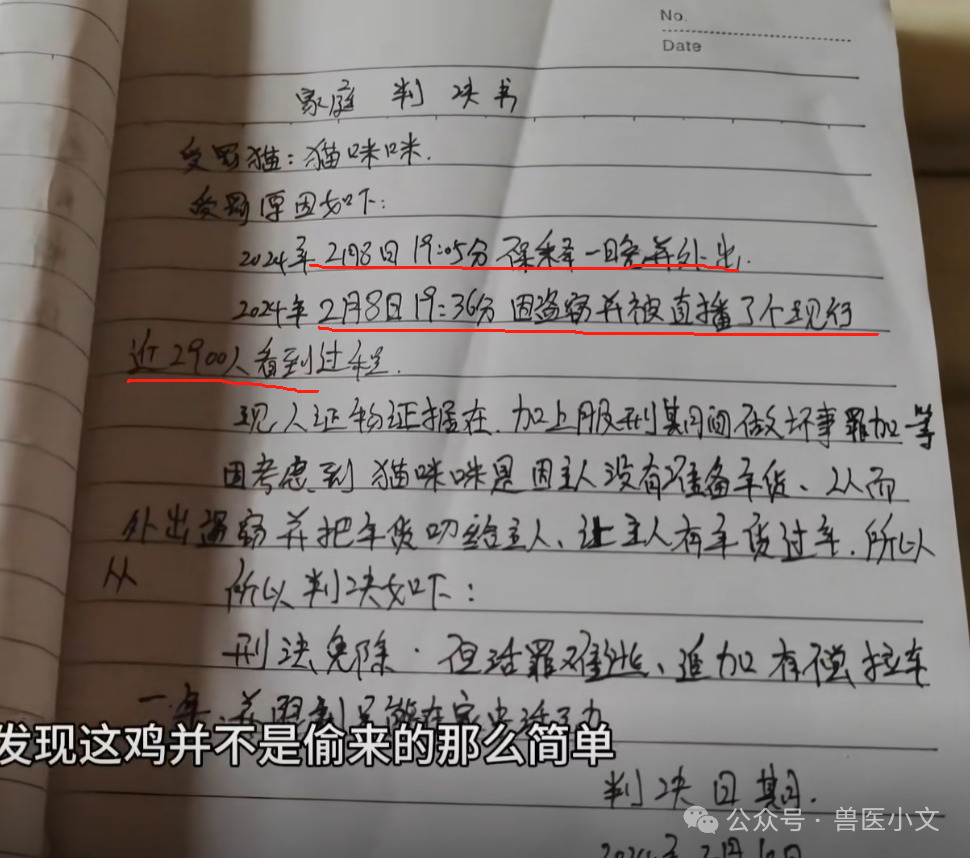 No.
Date
家庭 判 决 书
受罚猫：猫咪咪.
受罚原因如下：
2024年 2月8日 19:05分 保释一晚并外出.
2024年 2月8日19:36分 因盗窃并被直播了个现行
近2900人看到过程.
现人证物证据在.加上服刑期间做坏事罪加一等
因考虑到猫咪咪是因主人没有准备年货、从而
外出盗窃并把年货叨给主人、让主人有年货过年.所以
从 所以判决如下：
刑法免除.但活罪难逃、追加有偿拉车
一年.
发现这鸡并不是偷来的那么简单
判决日期.
公众号 · 兽医小文
2024年2月